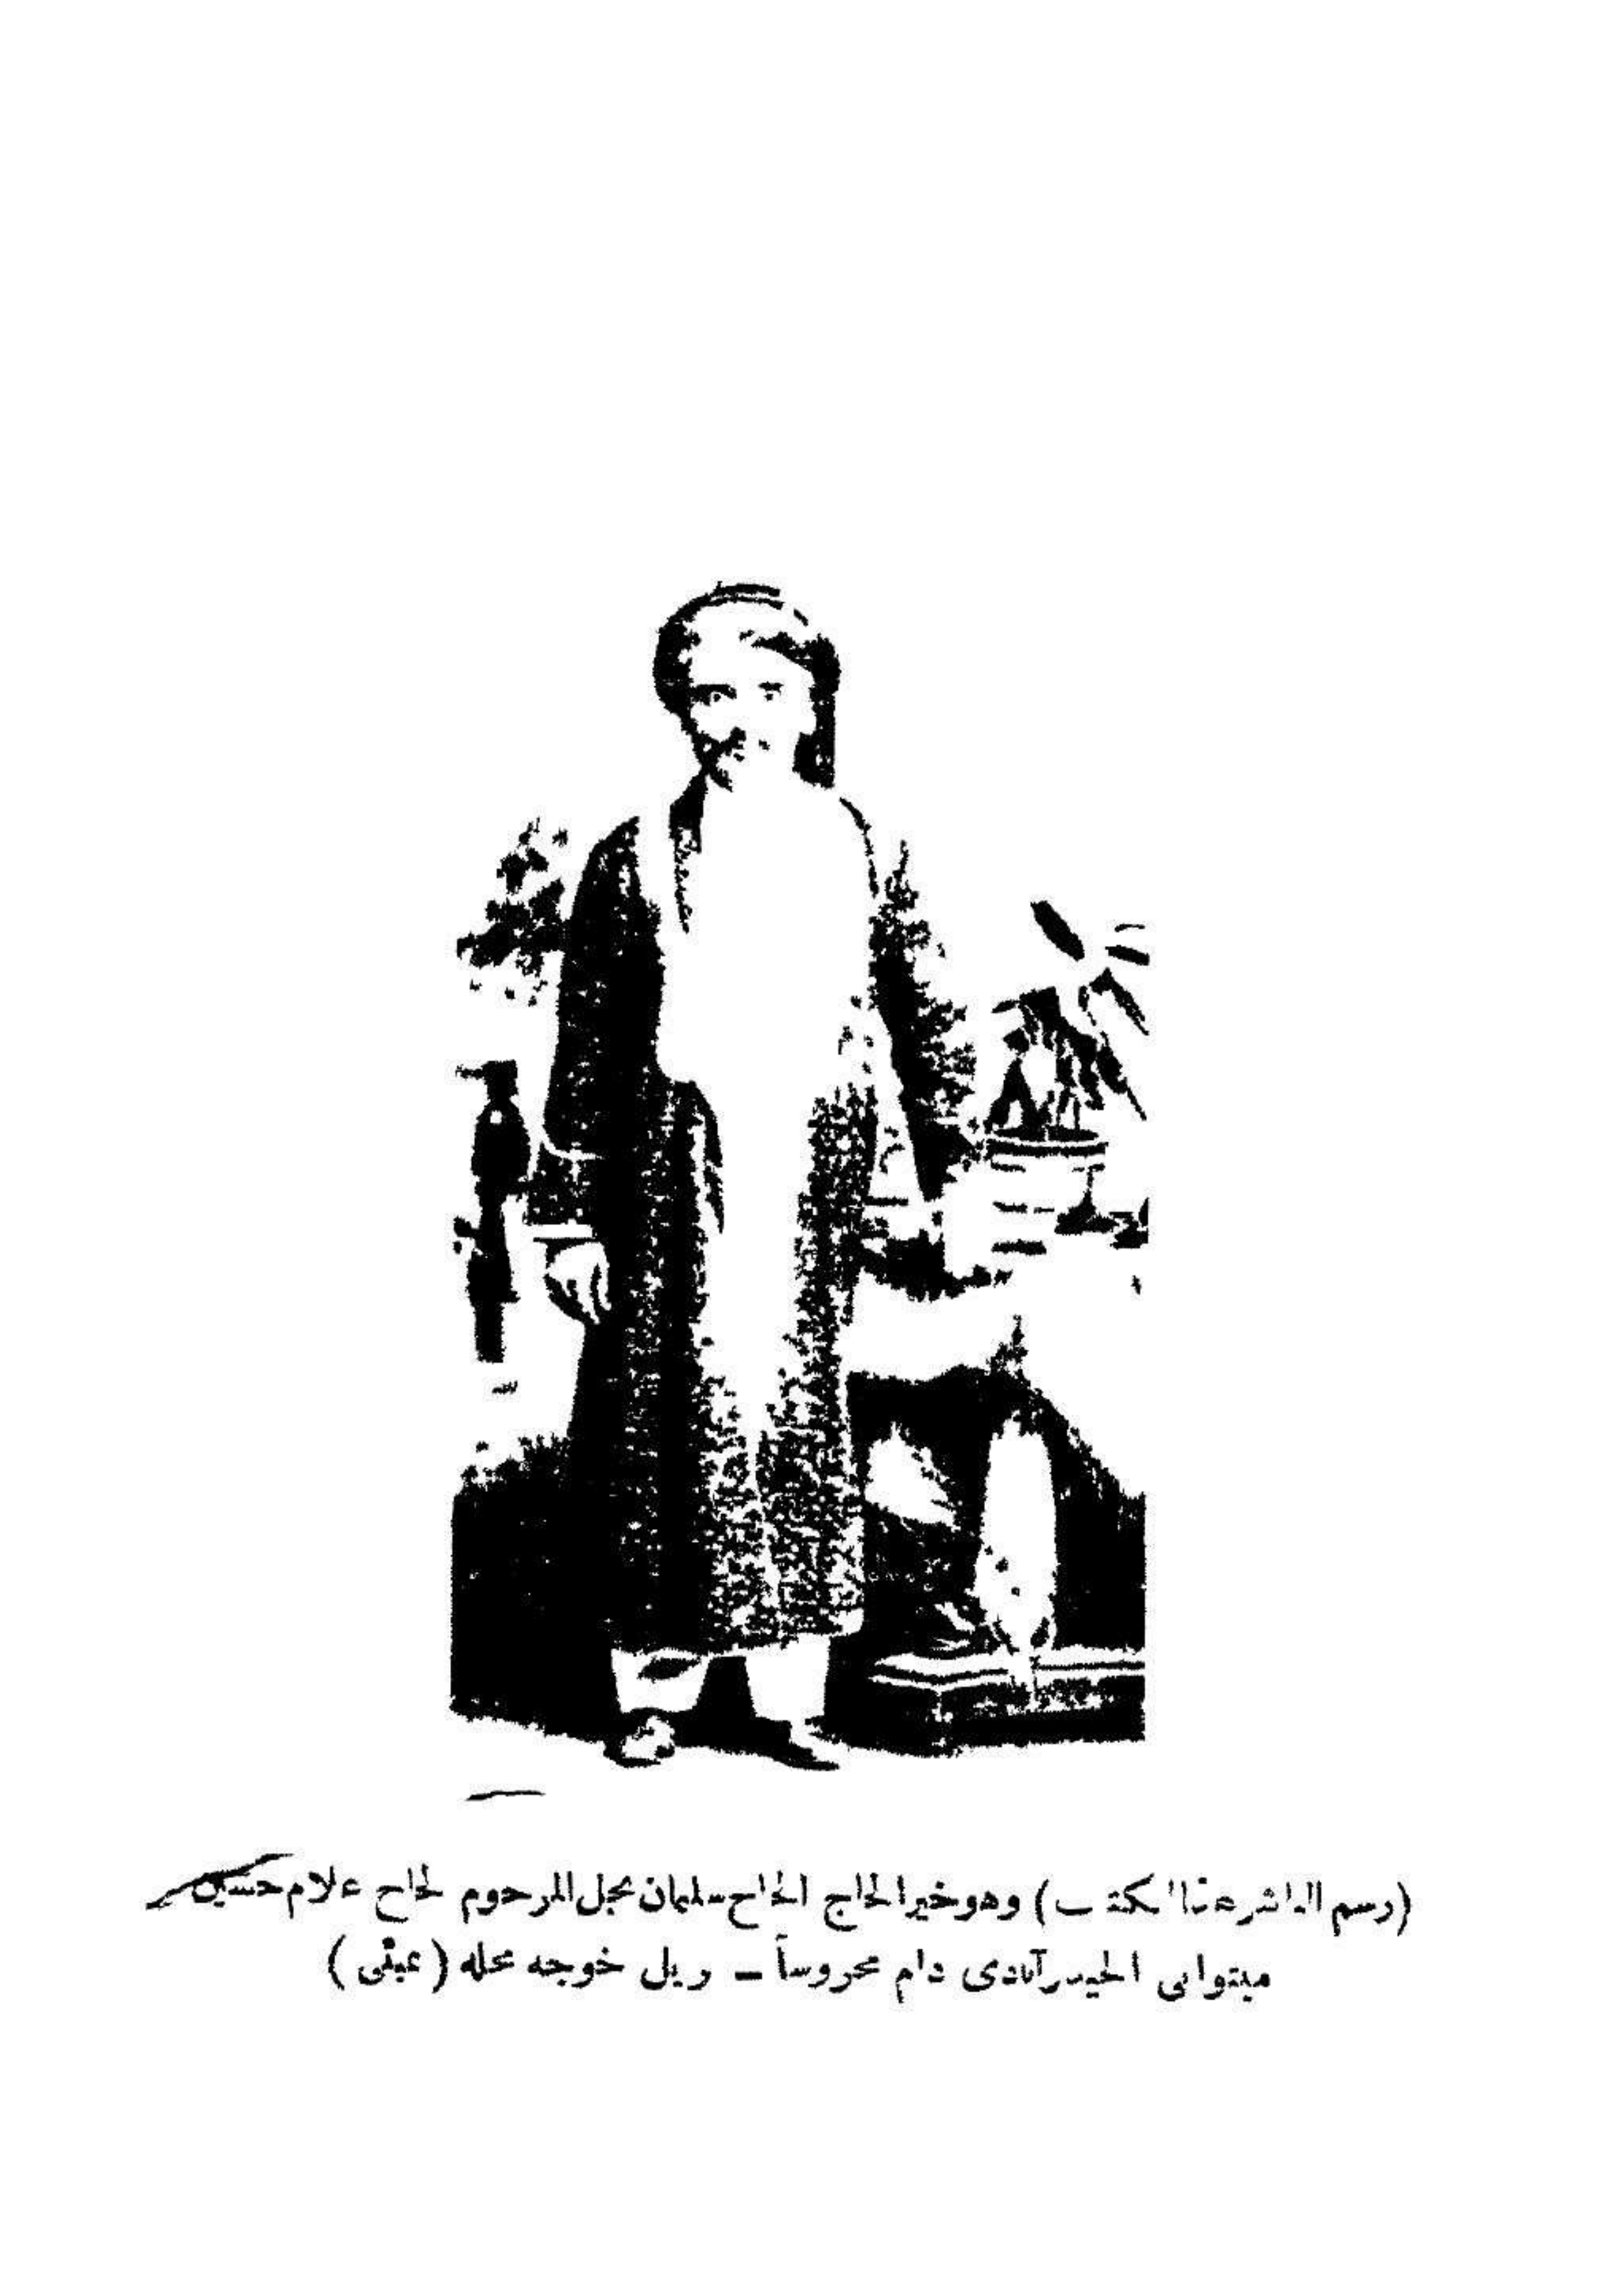 (رسم الناشر هذا الكتاب) وهو خير الحاج الحاج سليمان نجل المرحوم الحاج غلام حسين
الحيدرآبادی دام محروساً – نزيل خوجه محله (بمبئی)